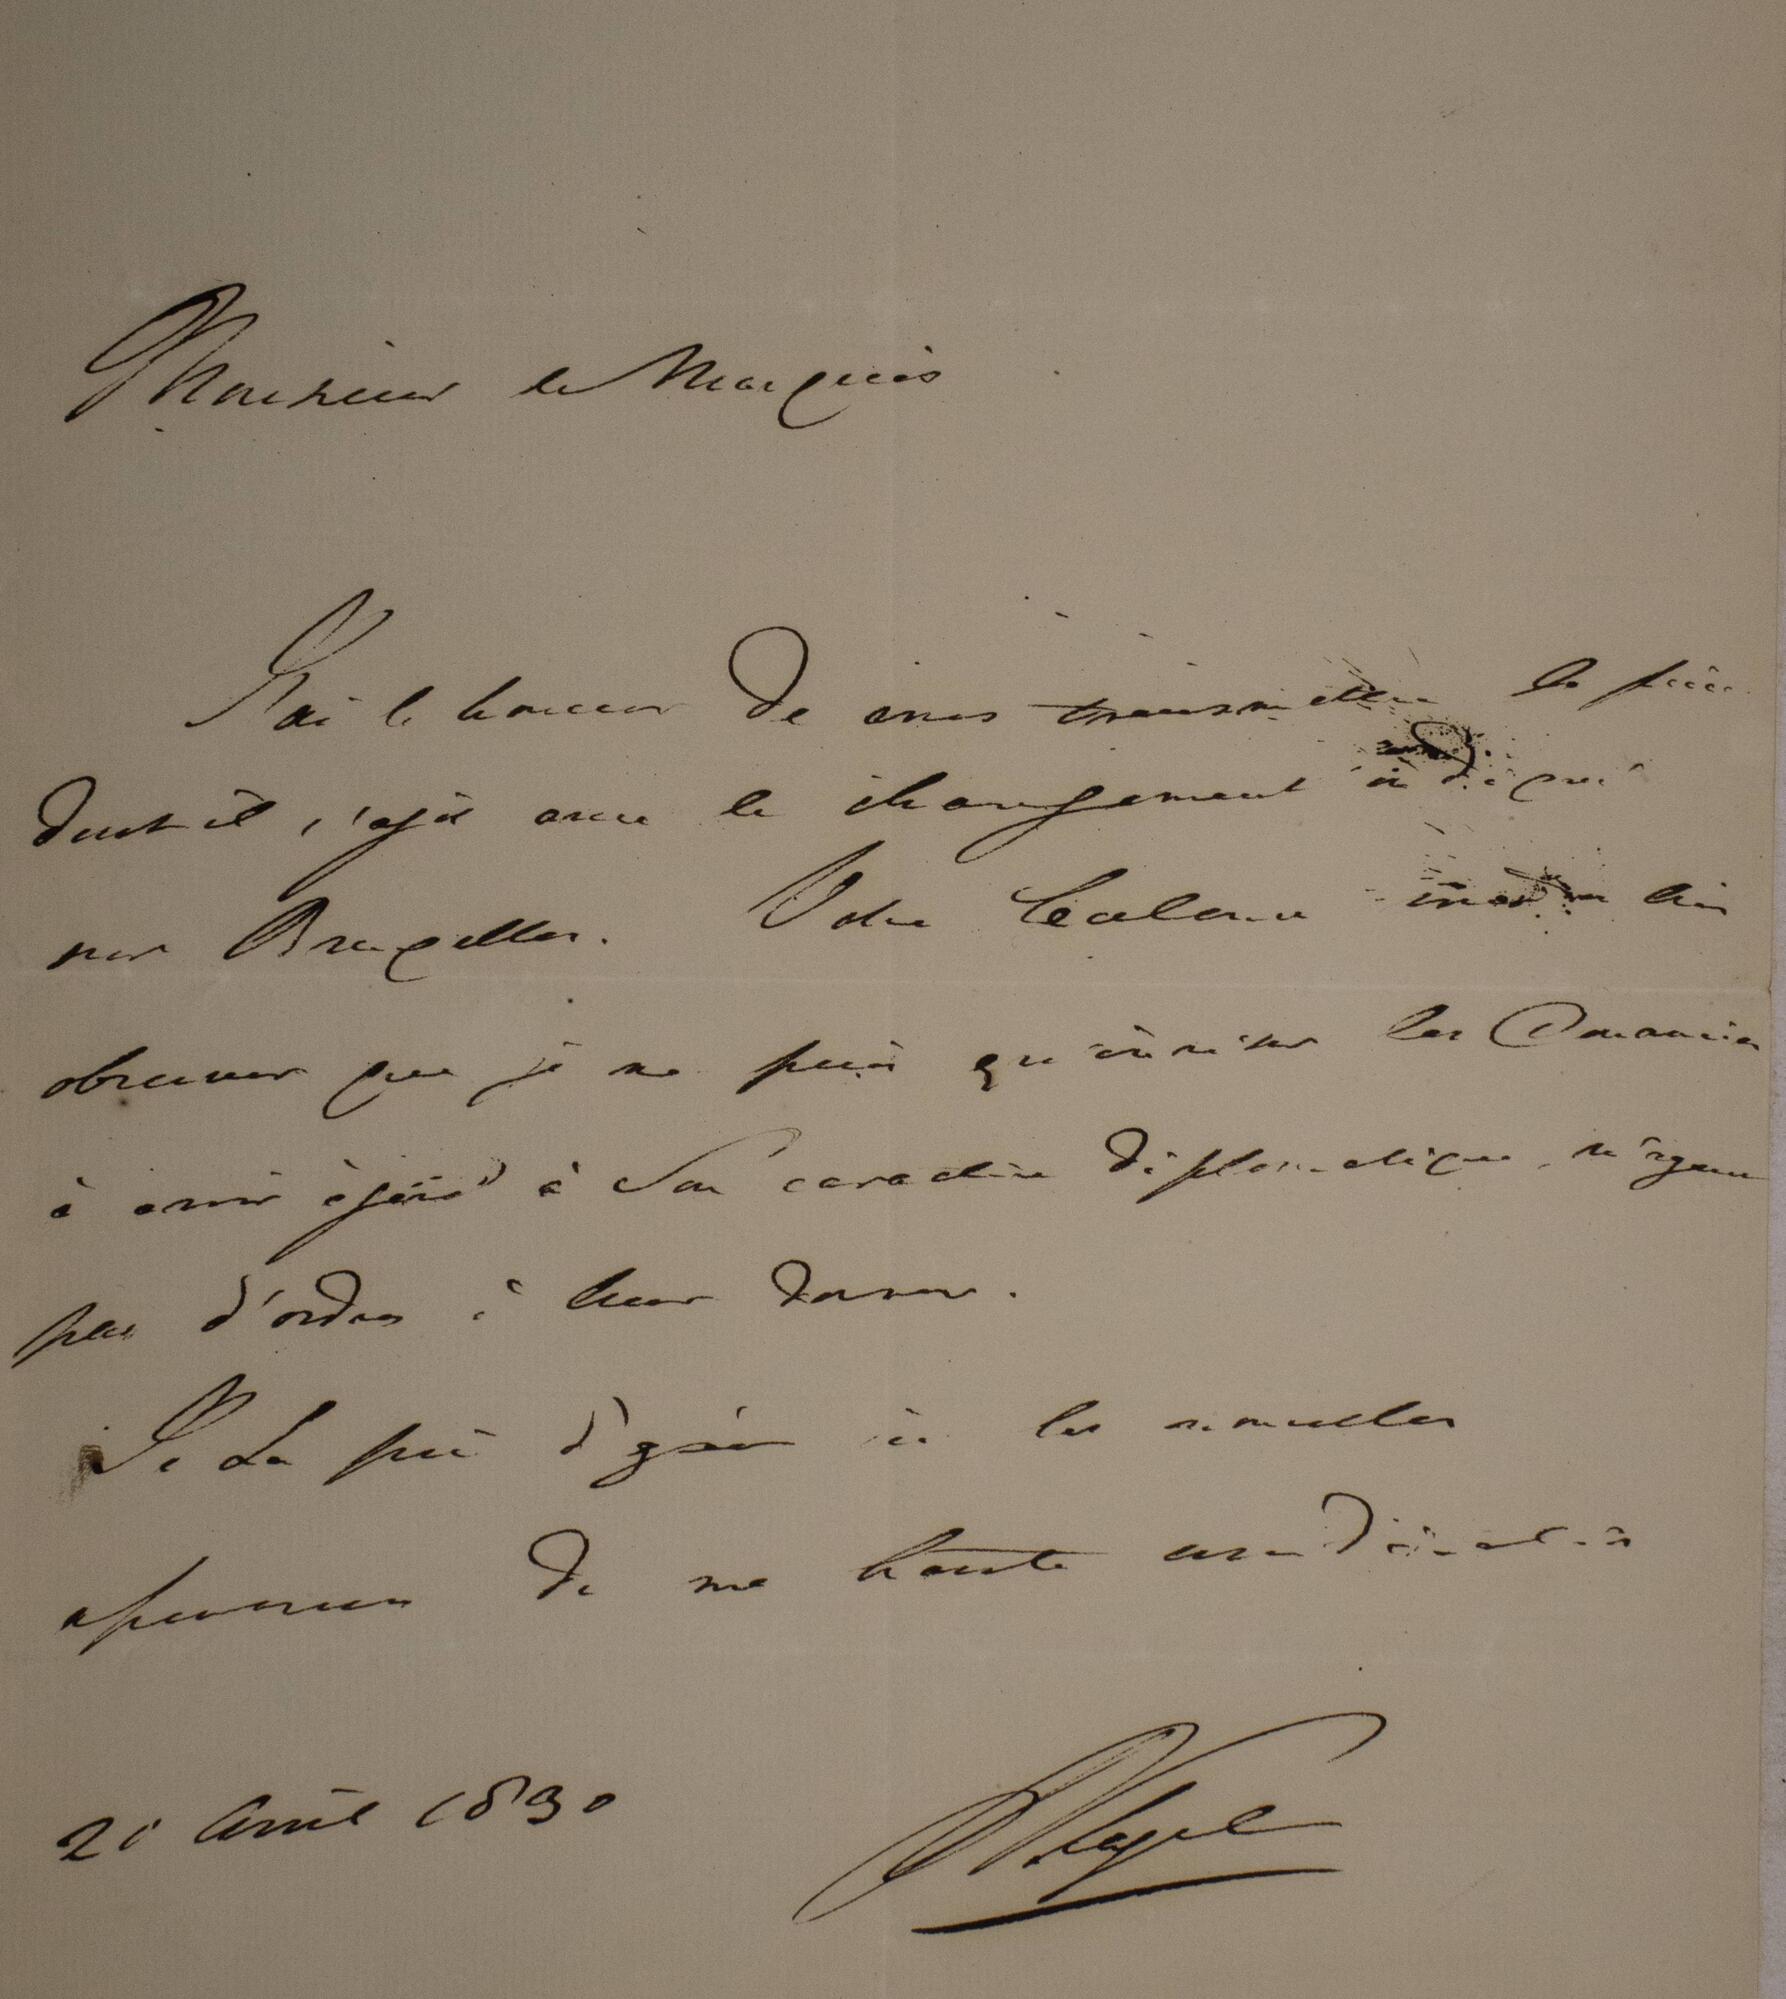 Monsieur le Marquis
J'ai l'honneur de vous transmettre la pièce
dont il s'agit avec le changement indiqué
sur Bruxelles. Votre Excellence voudra bien
observer que je ne puis qu'inviter les Douaniers
à avoir égard à Son caractère diplomatique, n'ayant
pas d'ordres à leur donner.
Je La prie d'agréer ici les nouvelles
assurances de ma haute considération
21 Avril 1830